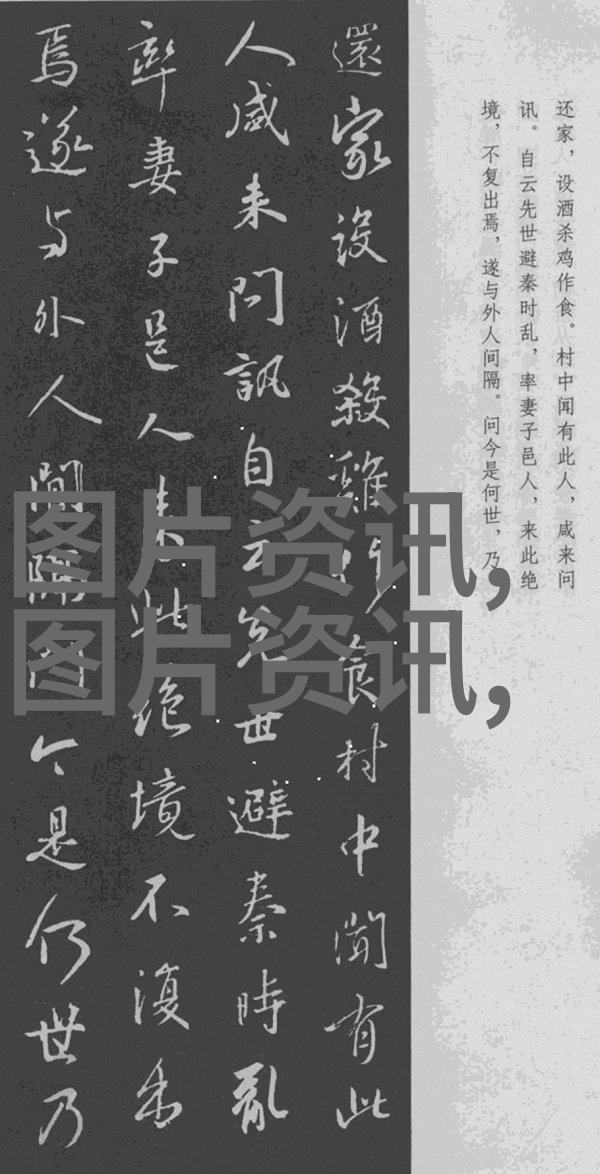 还家，设酒杀鸡作食。村中闻有此人，咸来问
讯。自云先世避秦时乱，率妻子邑人，来此绝
境，不复出焉，遂与外人间隔。问今是何世，乃
還家設酒殺雞作食村中聞有此
人咸来問訊自云先世避秦時亂
率妻子邑人来此絶境不復出
焉遂与外人間隔問今是何世乃
图片资讯,
图片资讯,